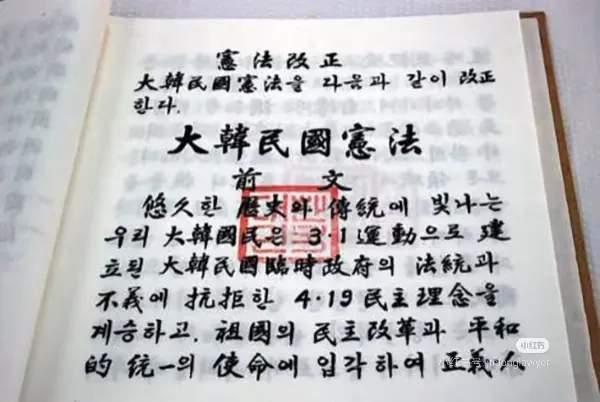 憲法改正
大韓民國憲法을 다음과 같이 改正
한다.
大韓民國憲法
前文
悠久한 歷史와 傳統에 빛나는
우리 大韓國民은 3·1運動으로 建
立된 大韓民國臨時政府의 法統과
不義에 抗拒한 4·19民主理念을
계승하고, 祖國의 民主改革과 平和
的 統一의 使命에 입각하여 正義
小红书